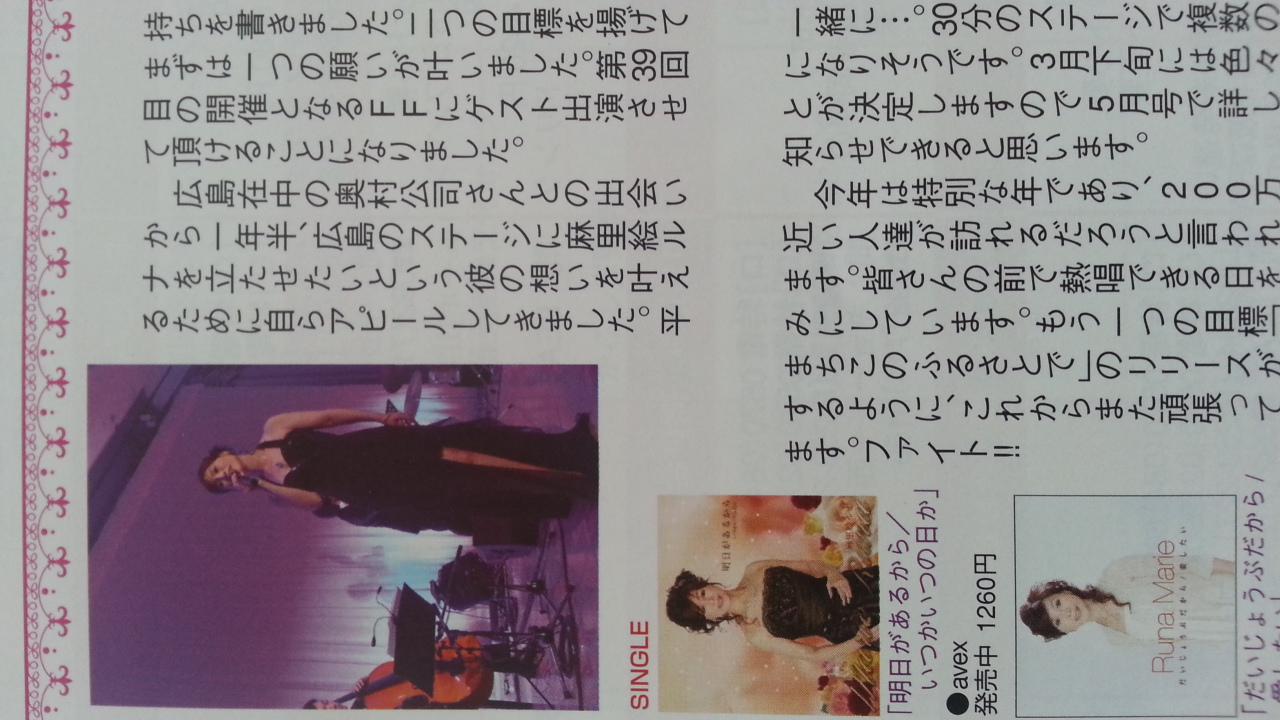 持ちを書きました。二つの目標を揚げて
まずは一つの願いが叶いました。第39回
目の開催となるＦＦにゲスト出演させ
て頂けることになりました。
広島在中の奥村公司さんとの出会い
から一年半、広島のステージに麻里絵ル
ナを立たせたいという彼の想いを叶え
るために自らアピールしてきました。平
一緒に…。30分のステージで複数の
になりそうです。3月下旬には色々
とが決定しますので5月号で詳し
知らせできると思います。
今年は特別な年であり、２００万
近い人達が訪れるだろうと言われ
ます。皆さんの前で熱唱できる日を
みにしています。もう一つの目標「
まちこのふるさとで」のリリースが
するように、これからまた頑張って
ます。ファイト!!
SINGLE
明日があるから
「明日があるから／
いつかいつの日か」
●avex
発売中 1260円
Runa Marie
だいじょうぶだから/愛したい
「だいじょうぶだから/